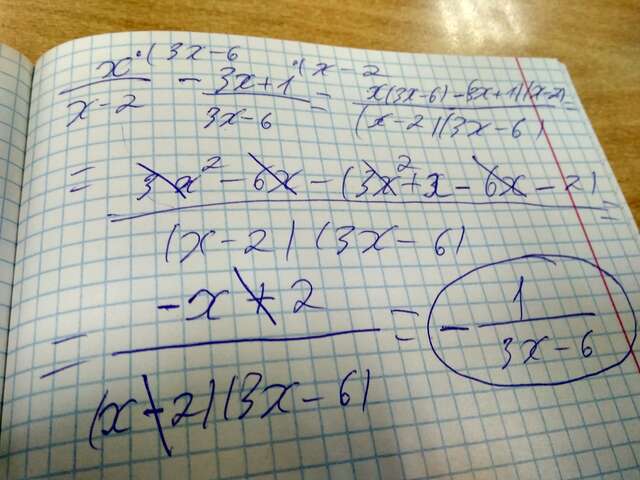 x·(3x-6 / x-2 - 3x+1·(x-2 / 3x-6 = x(3x-6)-(3x+1)(x-2) / (x-2)(3x-6) =
= 3x² - 6x - (3x² + x - 6x - 2) / (x-2)(3x-6) =
= -x+2 / (x-2)(3x-6) = - 1 / 3x-6